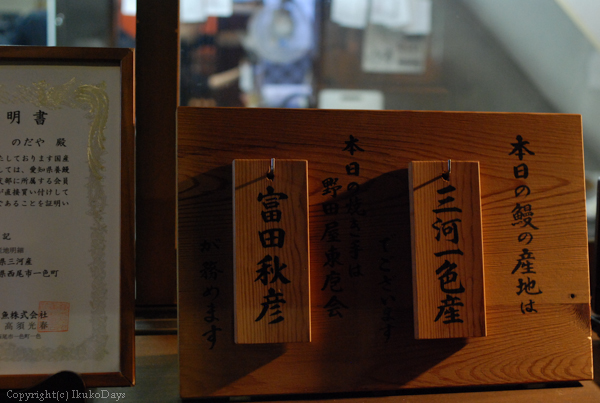 本日の鰻の産地は
三河一色産
でございます
本日の焼き手は
野田屋東庖会
富田秋彦
が務めます
明書
のだや 殿
たしております国産
しては、愛知県養鰻
支部に所属する会員
が直接買い付けして
であることを証明い
記
産地明細
県三河産
県西尾市一色町
魚株式会社
Copyright(c) IkukoDays